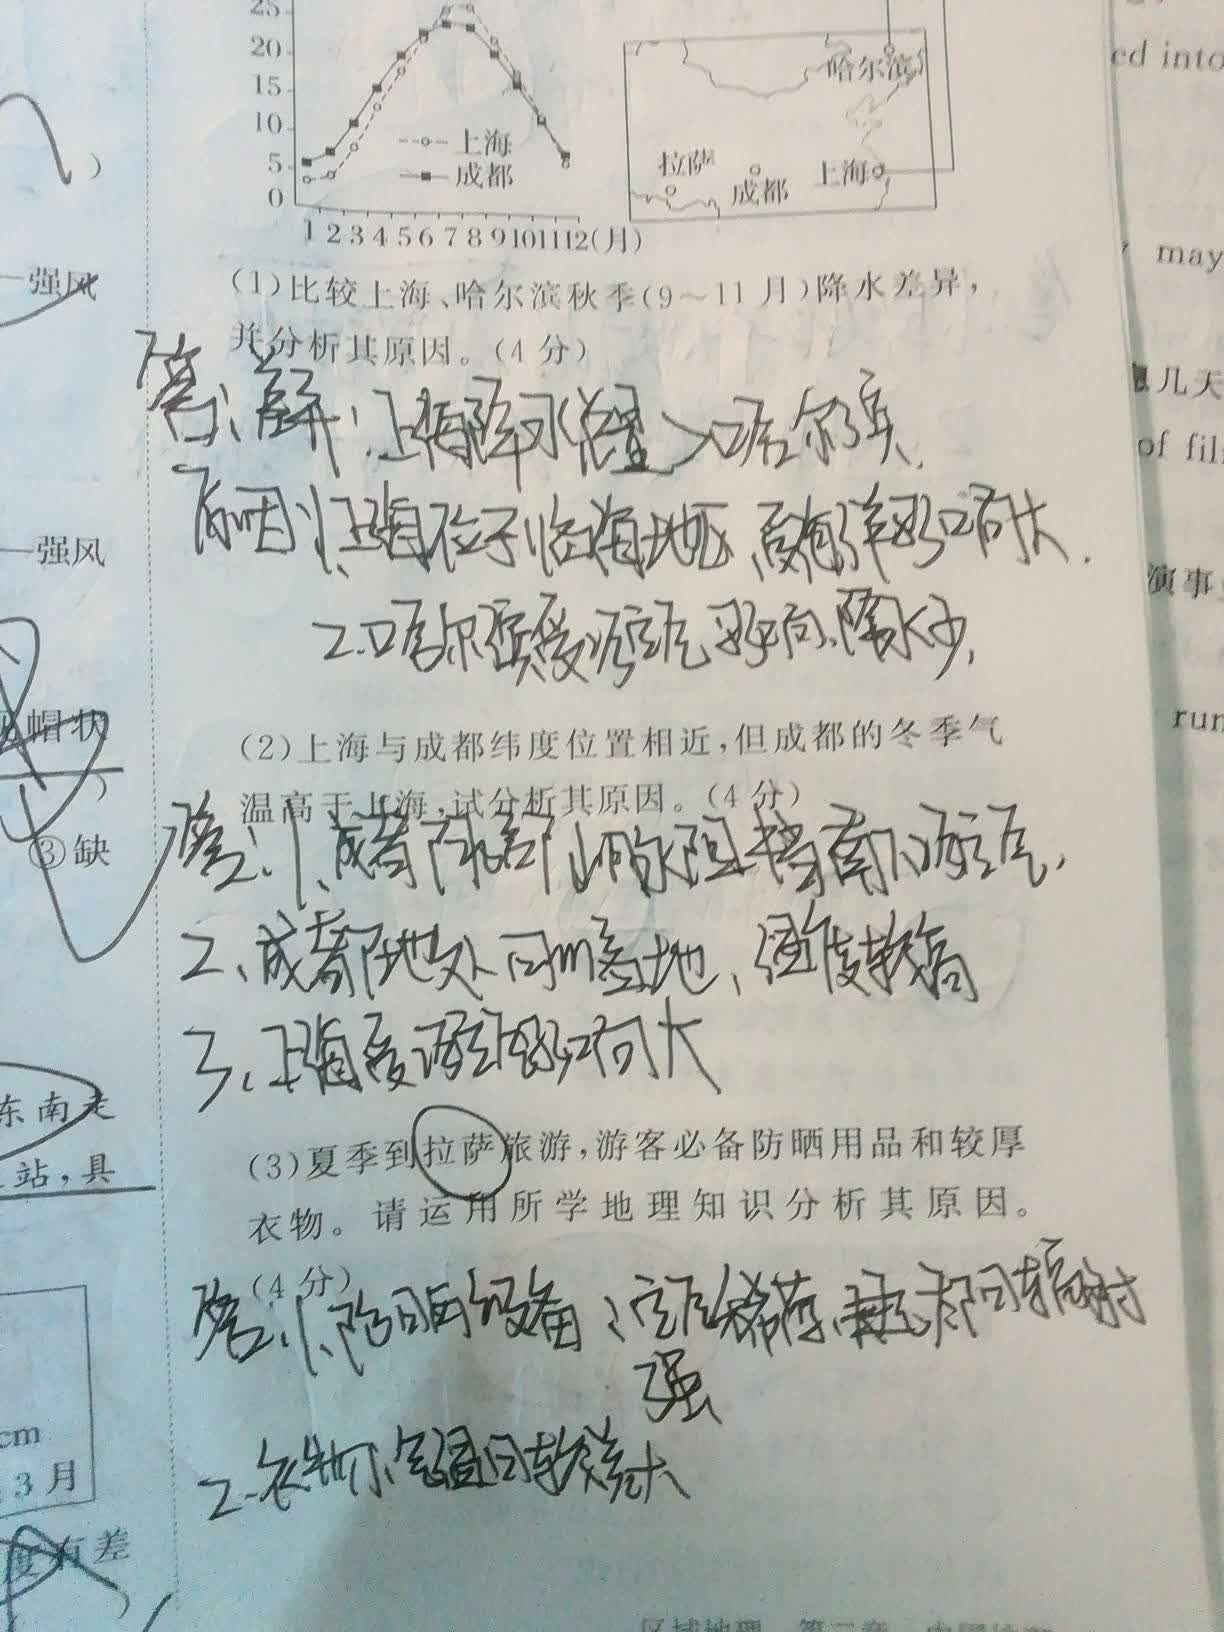 25
20
15
10
5
0
上海
成都
1 2 3 4 5 6 7 8 9 10 11 12(月)
哈尔滨
拉萨
成都
上海
(1)比较上海、哈尔滨秋季(9～11月)降水差异，
并分析其原因。(4分)
答:差异:上海降水总量>哈尔滨.
原因:1、上海位于临海地区、受海洋影响大.
2.哈尔滨受 影响、降水少.
(2)上海与成都纬度位置相近,但成都的冬季气
温高于上海,试分析其原因。(4分)
答:1、成都 北部山脉阻挡 冷空气,
2、成都地处 盆地、温度较高
3、上海受冷空气影响大
(3)夏季到拉萨旅游,游客必备防晒用品和较厚
衣物。请运用所学地理知识分析其原因。
(4分)
答:1、防晒设备:空气稀薄、 太阳辐射
强
2.衣物:气温日较差大
)
强风
强风
帽状
)
③缺
东南走
站,具
cm
3月
度有差
)
ed into
may
几天
of fil
演事
run